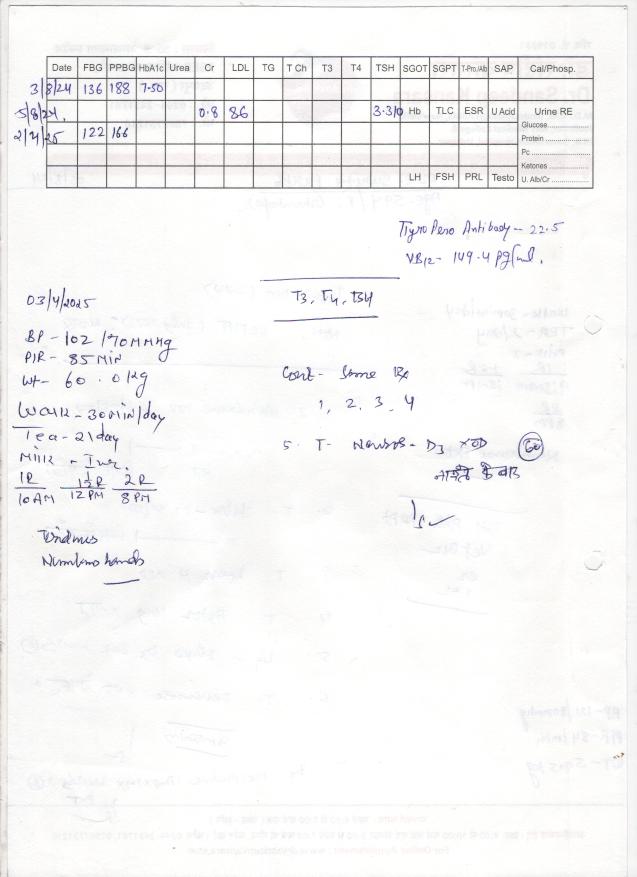 Date FBG PPBG HbA1c Urea Cr LDL TG T Ch T3 T4 TSH SGOT SGPT T-Pro./Alb SAP Cal/Phosp.
3/8/24 136 188 7.50
5/8/24. 0.8 86 3.310 Hb TLC ESR U Acid Urine RE
Glucose
2/4/25 122 166
Protein
Pc
Ketones
LH FSH PRL Testo U. Alb/Cr
Antibody - 22.5
VB12 - 149.4 pg/ml.
T3, T4,
03/4/2025
BP - 102/70 MMHg
P/R - 85 Min
Wt - 60.0 kg
Walk - 30 Min/day
Tea - 2/day
Milk -
1R 1½R 2R
10 AM 12 PM 8 PM
Cont - Same Rx
1, 2, 3, 4
5. T - - D3 x OD 60
नाश्ते के बाद
hands